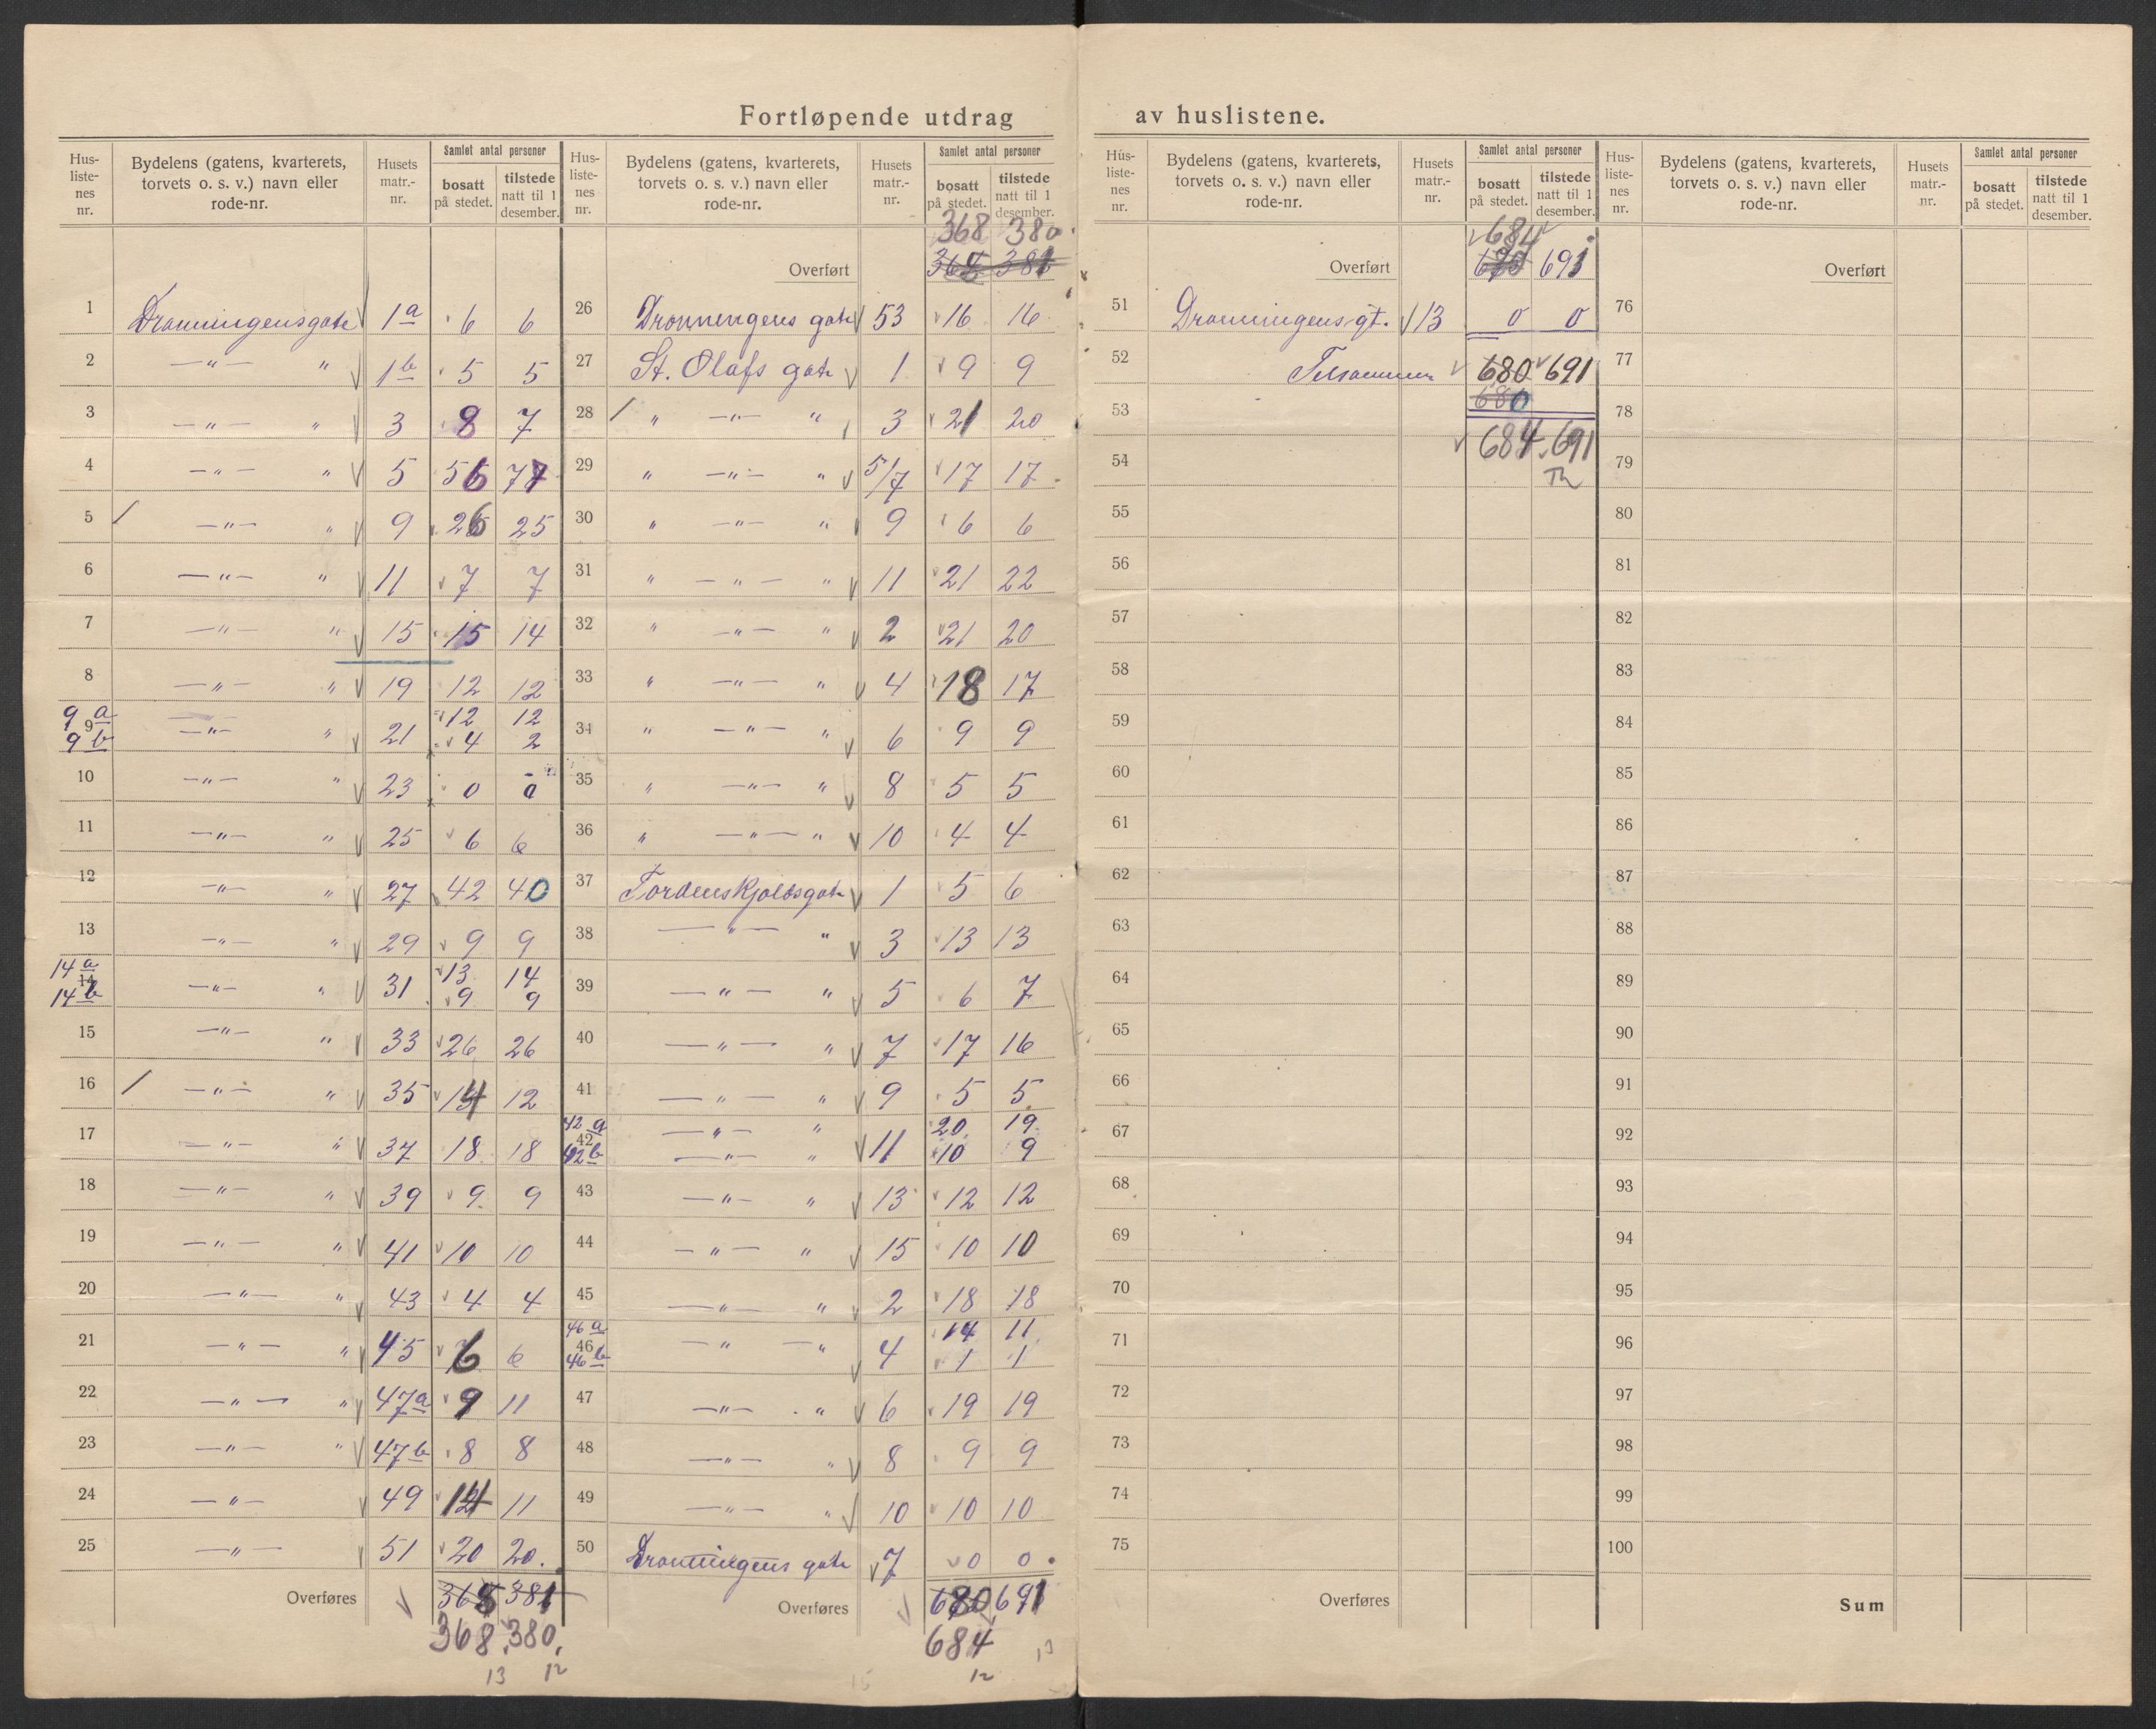 Fortløpende utdrag av huslistene.
Hus-listenes nr. | Bydelens (gatens, kvarterets, torvets o. s. v.) navn eller rode-nr. | Husets matr.-nr. | Samlet antal personer | bosatt på stedet. | tilstede natt til 1 desember.
1 Dronningensgate 1a 6 6
2 —"— " 1b 5 5
3 —"— " 3 8 7
4 —"— " 5 56 77
5 —"— " 9 26 25
6 —"— " 11 7 7
7 —"— " 15 15 14
8 —"— " 19 12 12
9a 12 12
9 —"— " 21
9b 4 2
10 —"— " 23 0 0
11 —"— " 25 6 6
12 —"— " 27 42 40
13 —"— " 29 9 9
14a 13 14
14 —"— " 31
14b 9 9
15 —"— " 33 26 26
16 —"— " 35 14 12
17 —"— " 37 18 18
18 —"— " 39 9 9
19 —"— " 41 10 10
20 —"— " 43 4 4
21 —"— " 45 6 6
22 —"— " 47a 9 11
23 —"— " 47b 8 8
24 —"— 49 14 11
25 —"— 51 20 20.
Overføres 381
368. 380.
13 12
Hus-listenes nr. | Bydelens (gatens, kvarterets, torvets o. s. v.) navn eller rode-nr. | Husets matr.-nr. | Samlet antal personer | bosatt på stedet. | tilstede natt til 1 desember.
368 380
Overført 381
26 Dronningens gate 53 16 16
27 St. Olafs gate 1 9 9
28 " —"— " 3 21 20
29 " —"— " 5/7 17 17
30 " —"— " 9 6 6
31 " —"— " 11 21 22
32 " —"— " 2 21 20
33 " —"— " 4 18 17
34 " —"— " 6 9 9
35 " —"— " 8 5 5
36 " —"— " 10 4 4
37 Tordenskjoldsgate 1 5 6
38 —"— " 3 13 13
39 —"— " 5 6 7
40 —"— " 7 17 16
41 —"— " 9 5 5
42a —"— " 20 19
42 11
42b —"— " 10 9
43 —"— " 13 12 12
44 —"— " 15 10 10
45 —"— " 2 18 18
46a 14 11
46 —"— " 4
46b 1 1
47 —"— " 6 19 19
48 —"— " 8 9 9
49 —"— " 10 10 10
50 Dronningens gate 7 0 0
Overføres 680 691
684
12 13
Hus-listenes nr. | Bydelens (gatens, kvarterets, torvets o. s. v.) navn eller rode-nr. | Husets matr.-nr. | Samlet antal personer | bosatt på stedet. | tilstede natt til 1 desember.
684
Overført 691
51 Dronningens gt. 13 0 0
52 Tilsammen 680 691
680
53
684 691
54
55
56
57
58
59
60
61
62
63
64
65
66
67
68
69
70
71
72
73
74
75
Overføres
Hus-listenes nr. | Bydelens (gatens, kvarterets, torvets o. s. v.) navn eller rode-nr. | Husets matr.-nr. | Samlet antal personer | bosatt på stedet. | tilstede natt til 1 desember.
Overført
76
77
78
79
80
81
82
83
84
85
86
87
88
89
90
91
92
93
94
95
96
97
98
99
100
Sum